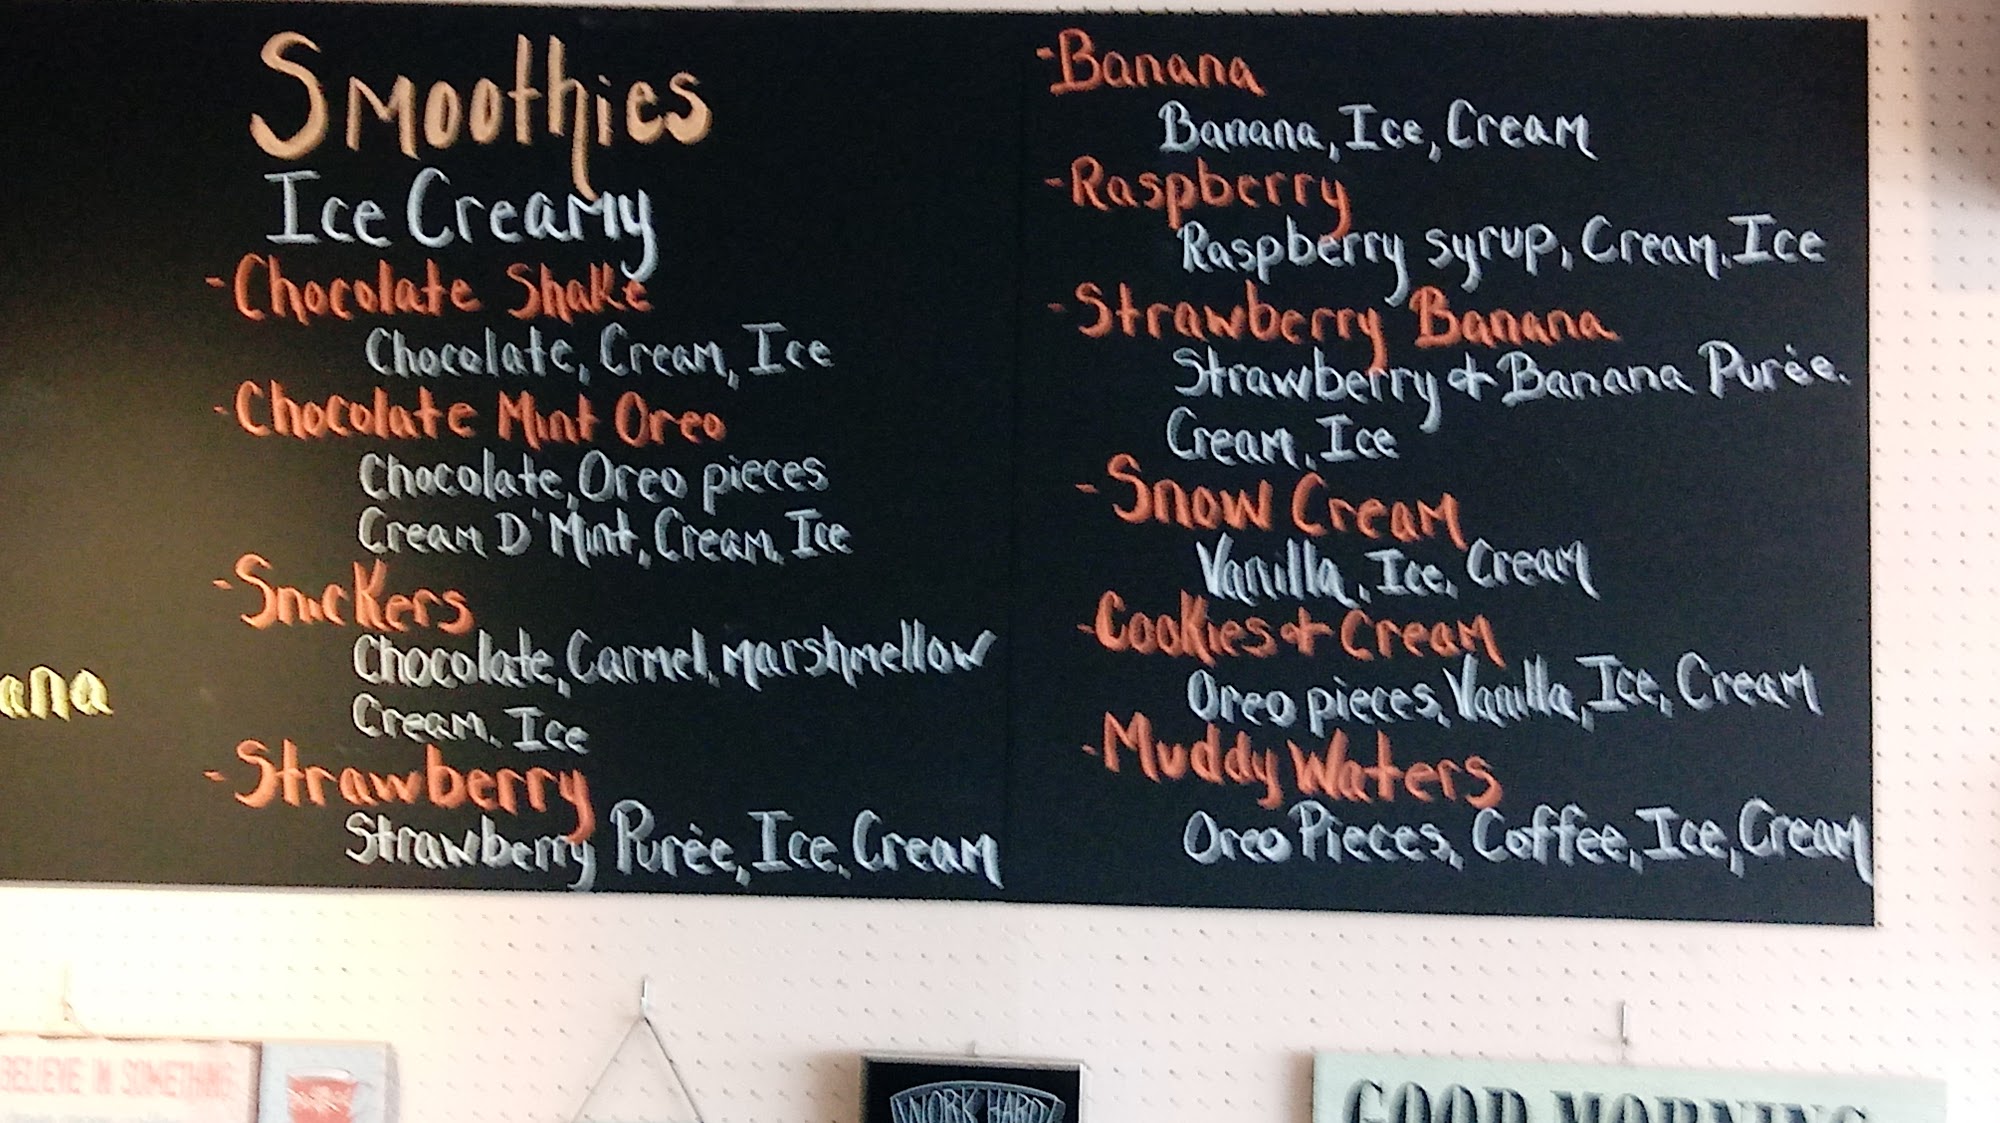 Smoothies
Ice Creamy
-Chocolate Shake
Chocolate, Cream, Ice
-Chocolate Mint Oreo
Chocolate, Oreo pieces
Cream D'Mint, Cream, Ice
-Snickers
Chocolate, Carmel, marshmellow
Cream, Ice
-Strawberry
Strawberry Purèe, Ice, Cream
-Banana
Banana, Ice, Cream
-Raspberry
Raspberry syrup, Cream, Ice
-Strawberry Banana
Strawberry & Banana Purèe,
Cream, Ice
-Snow Cream
Vanilla, Ice, Cream
-Cookies & Cream
Oreo pieces, Vanilla, Ice, Cream
-Muddy Waters
Oreo Pieces, Coffee, Ice, Cream
ana
BELIEVE IN SOMETHING
WORK HARD
GOOD MORNING